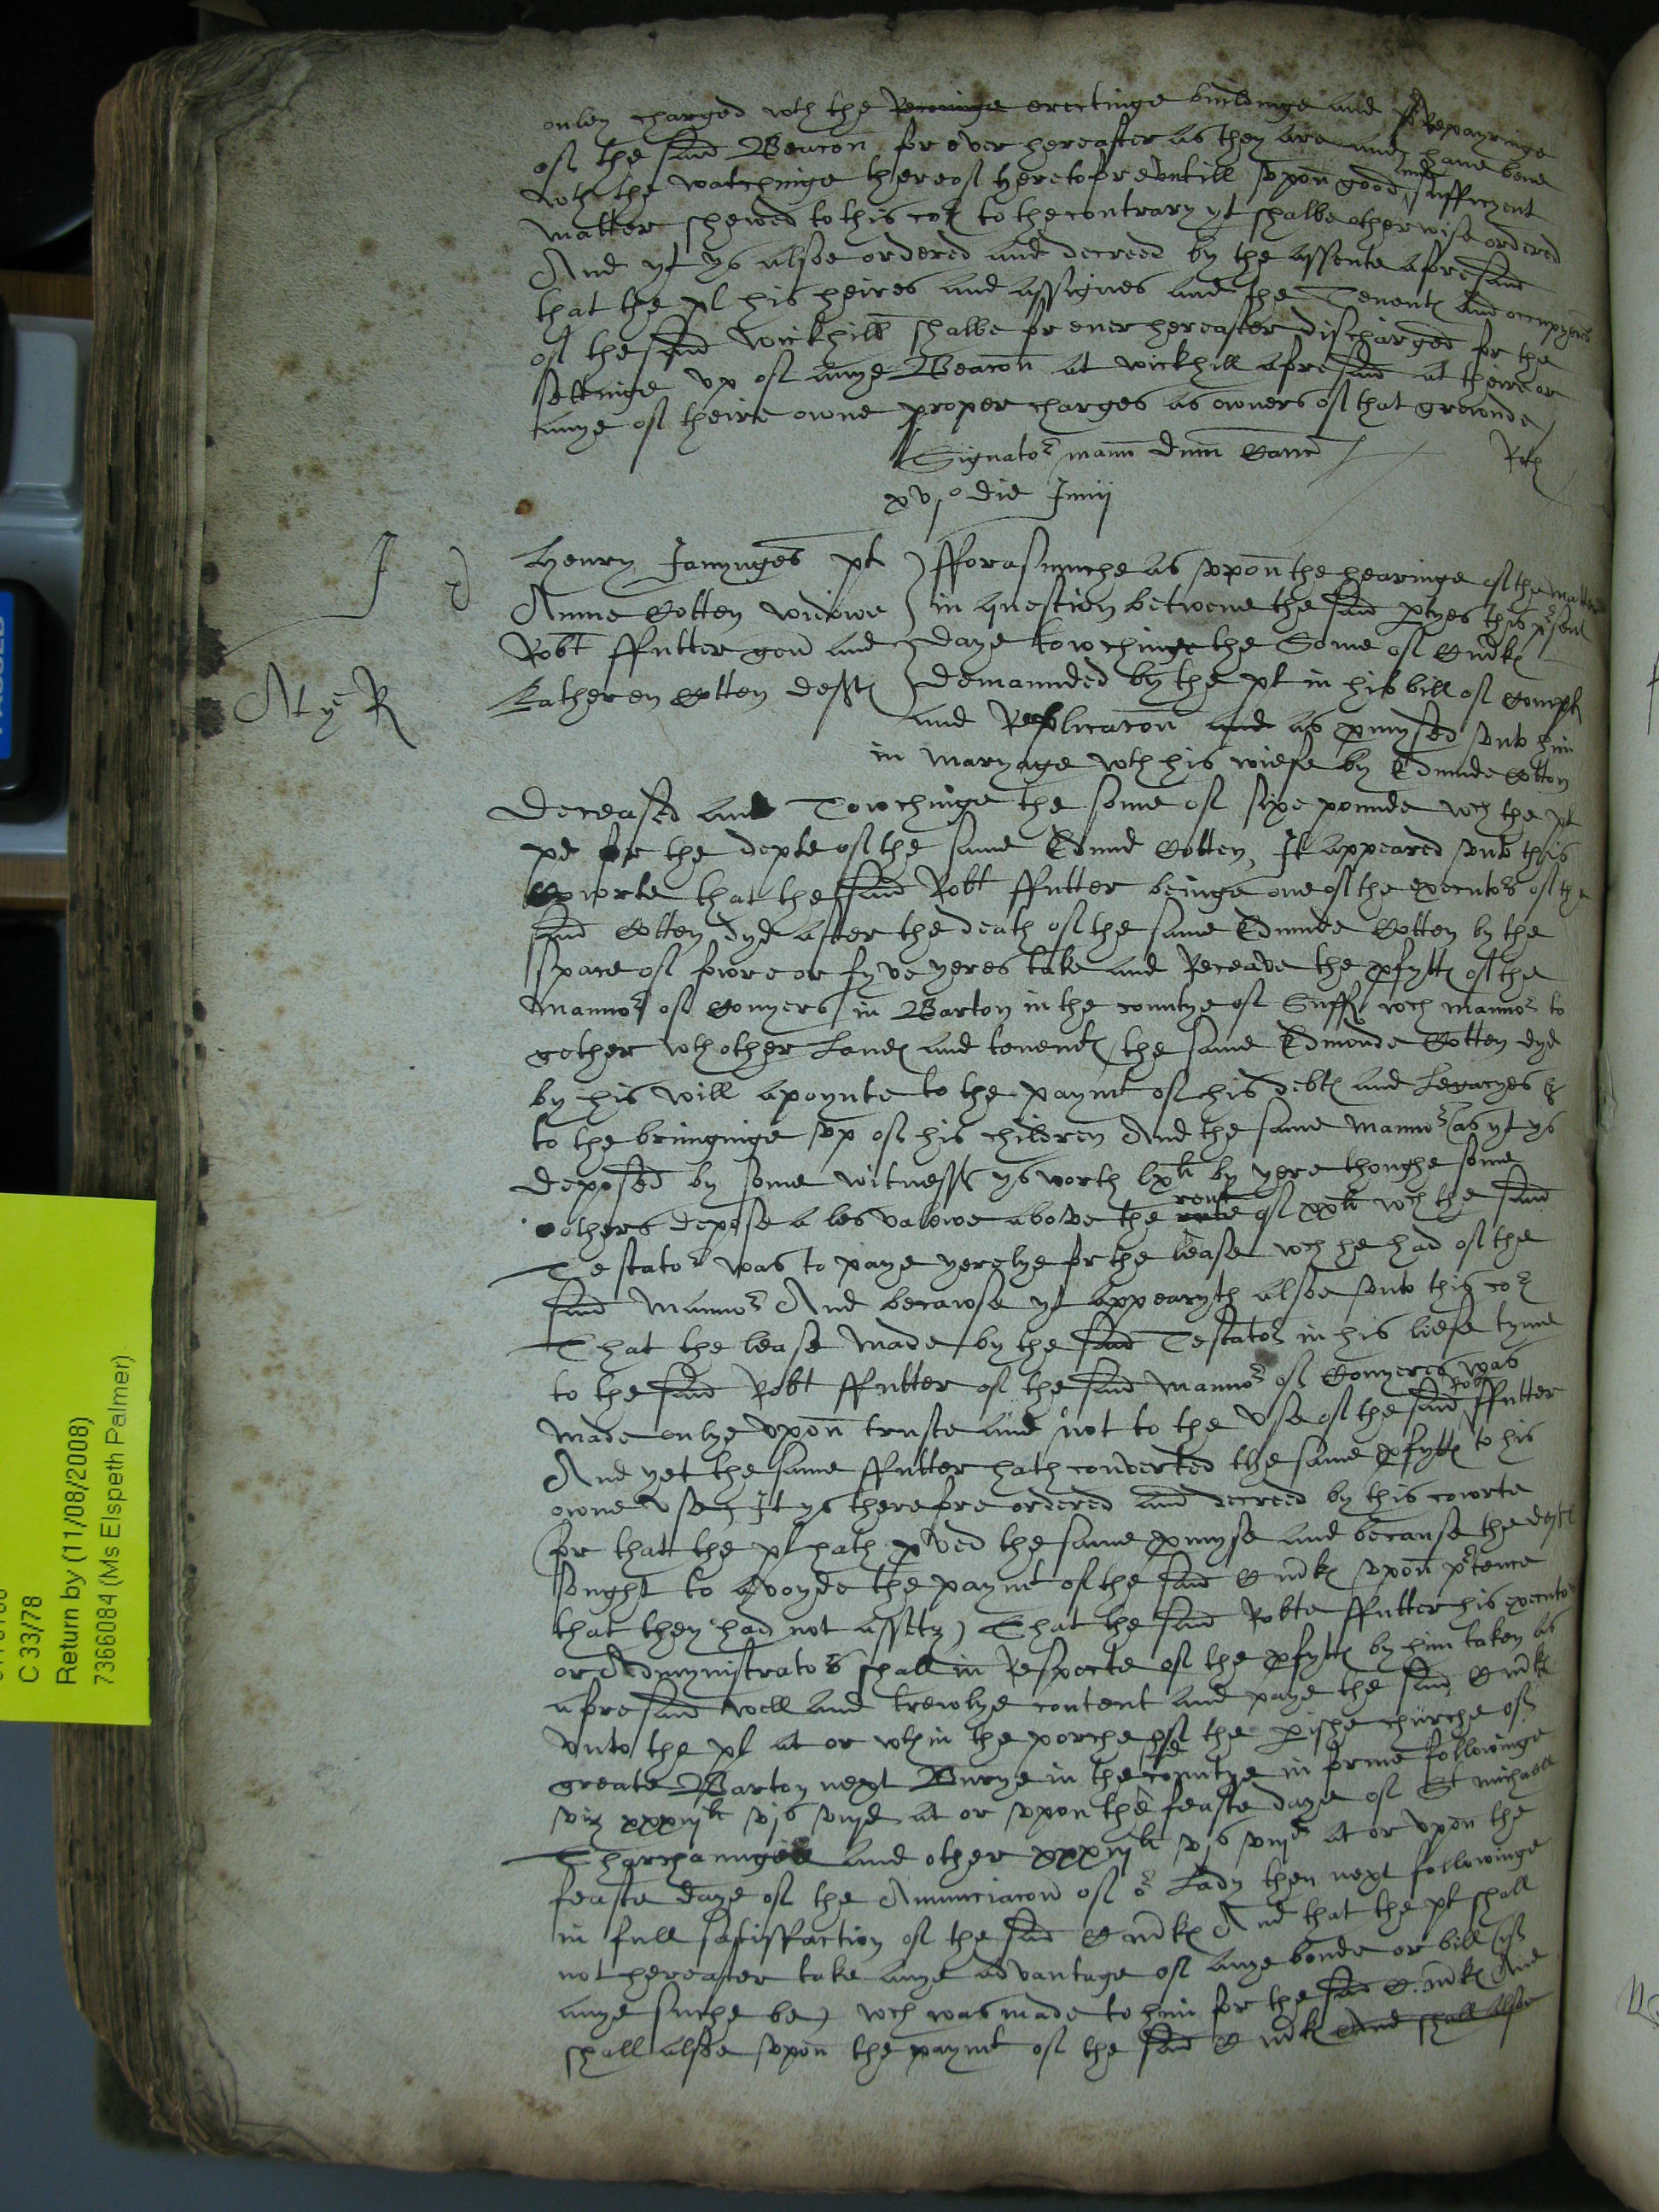 onley charged wth the Renninge erectinge buildinge and Repayringe
of the said Beacon for ever hereafter as they are and have bene
wth the watchinge thereof heretofore untill upon good and sufficyent
matter shewed to this cor to the contrary yt shalbe otherwise ordered
And yt ys alsoe ordered and decreed by the assente aforesaid
that the pl his heires and assignes and the Tenent and occupyers
of the said Wickhill shalbe for ever hereafter discharged for the
settinge up of anye Beacon at wickhill aforesaid at theire or
anye of theire owne proper charges as owners of that grownde
Signator mann dni Canc
xv o die Junii
Henry Jamynges plt
Anne Cotten widowe
Robt ffutter gen and
Katheren Cotten deff
fforasmuche as upon the hearinge of the matter
in question betwene the said ptyes this psent
daye towchinge the Some of C mrk
demaunded by the plt in his bill of Complt
and Replicacon and as pmysed unto him
in maryage wth his wiefe by Edmunde Cotton
deceased and Towchinge the some of sixe pounde wch the plt
pd for the depte of the same Edmund Cotten, It appeared unto this
Cowrte that the said Robt ffutter beinge one of the executors of the
said Cotten dyd after the death of the same Edmunde Cotten by the
space of fowre or fyve yeres take and Receave the pfytt of the
mannor of Conyers in Barton in the countye of Suff wch mannor to
gether wth other Land and tenemt the same Edmonde Cotten dyd
by his will apoynte to the paymt of his debt and Legacyes &
to the bringinge up of his children And the same mannor (as yt ys
deposed by some witness ys worth lxli by yere thoughe some
others depose a les valewe above the rate rent of xxli wch the said
Testator was to paye yerelye for the lease wch he had of the
said mannor And becawse yt appearyth alsoe unto this cor
That the lease made by the said Testator in his liefe tyme
to the said Robt ffutter of the said mannor of Conyeres was
made onlye upon truste and not to the use of the said Robt ffutter
And yet the same ffutter hath converted the same pfytt to his
owne use, It ys therefore ordered and decreed by this cowrte
(for that the pl hath pved the same pmyse and because the deft
sought to avoyde the paymt of the said C mrk upon ptence
that they had not assets) That the said Robte ffutter his executors
or Admynistrators shall in Respecte of the pfytt by him taken as
aforesaid well and trewlye content and paye the said C mrk
Unto the pl at or wthin the porche of the pishe churche of
greate Barton next Burye in the sd countye in forme followinge
viz xxxiijli vjs viijd at or upon the feaste daye of St michaell
Tharchanngell and other xxxiijli vjs viijd at or upon the
feaste daye of the Annunciacon of or Lady then next followinge
in full satisffaction of the said C mrk And that the plt shall
not hereafter take anye advantage of anye bonde or bill (yf
anye suche be) wch was made to him for the said C mrk And
shall alsoe upon the paymt of the said C mrk And shall alsoe
C 33/78
Return by (11/08/2008)
7366084 (Ms Elspeth Palmer)